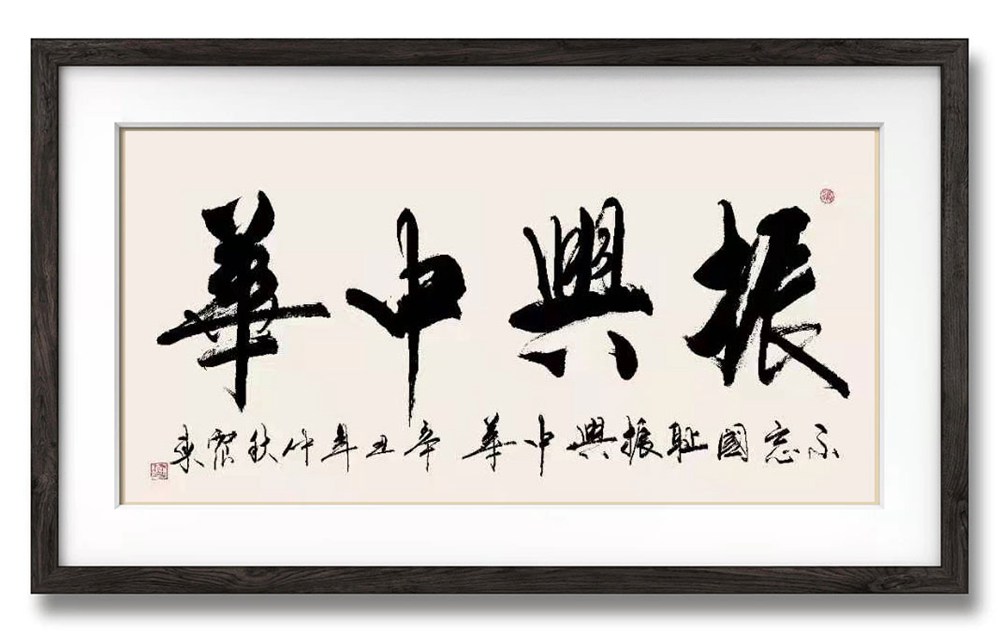 振興中華
不忘國耻振興中華辛丑年仲秋震東